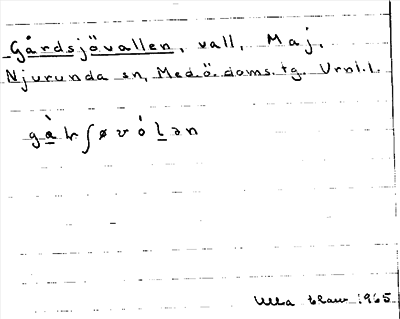 Gårdsjövallen, vall, Maj.
Njurunda sn, Med.ö. doms. tg. Vrnl. l.
gàɽʃøvólən
Ulla 1965